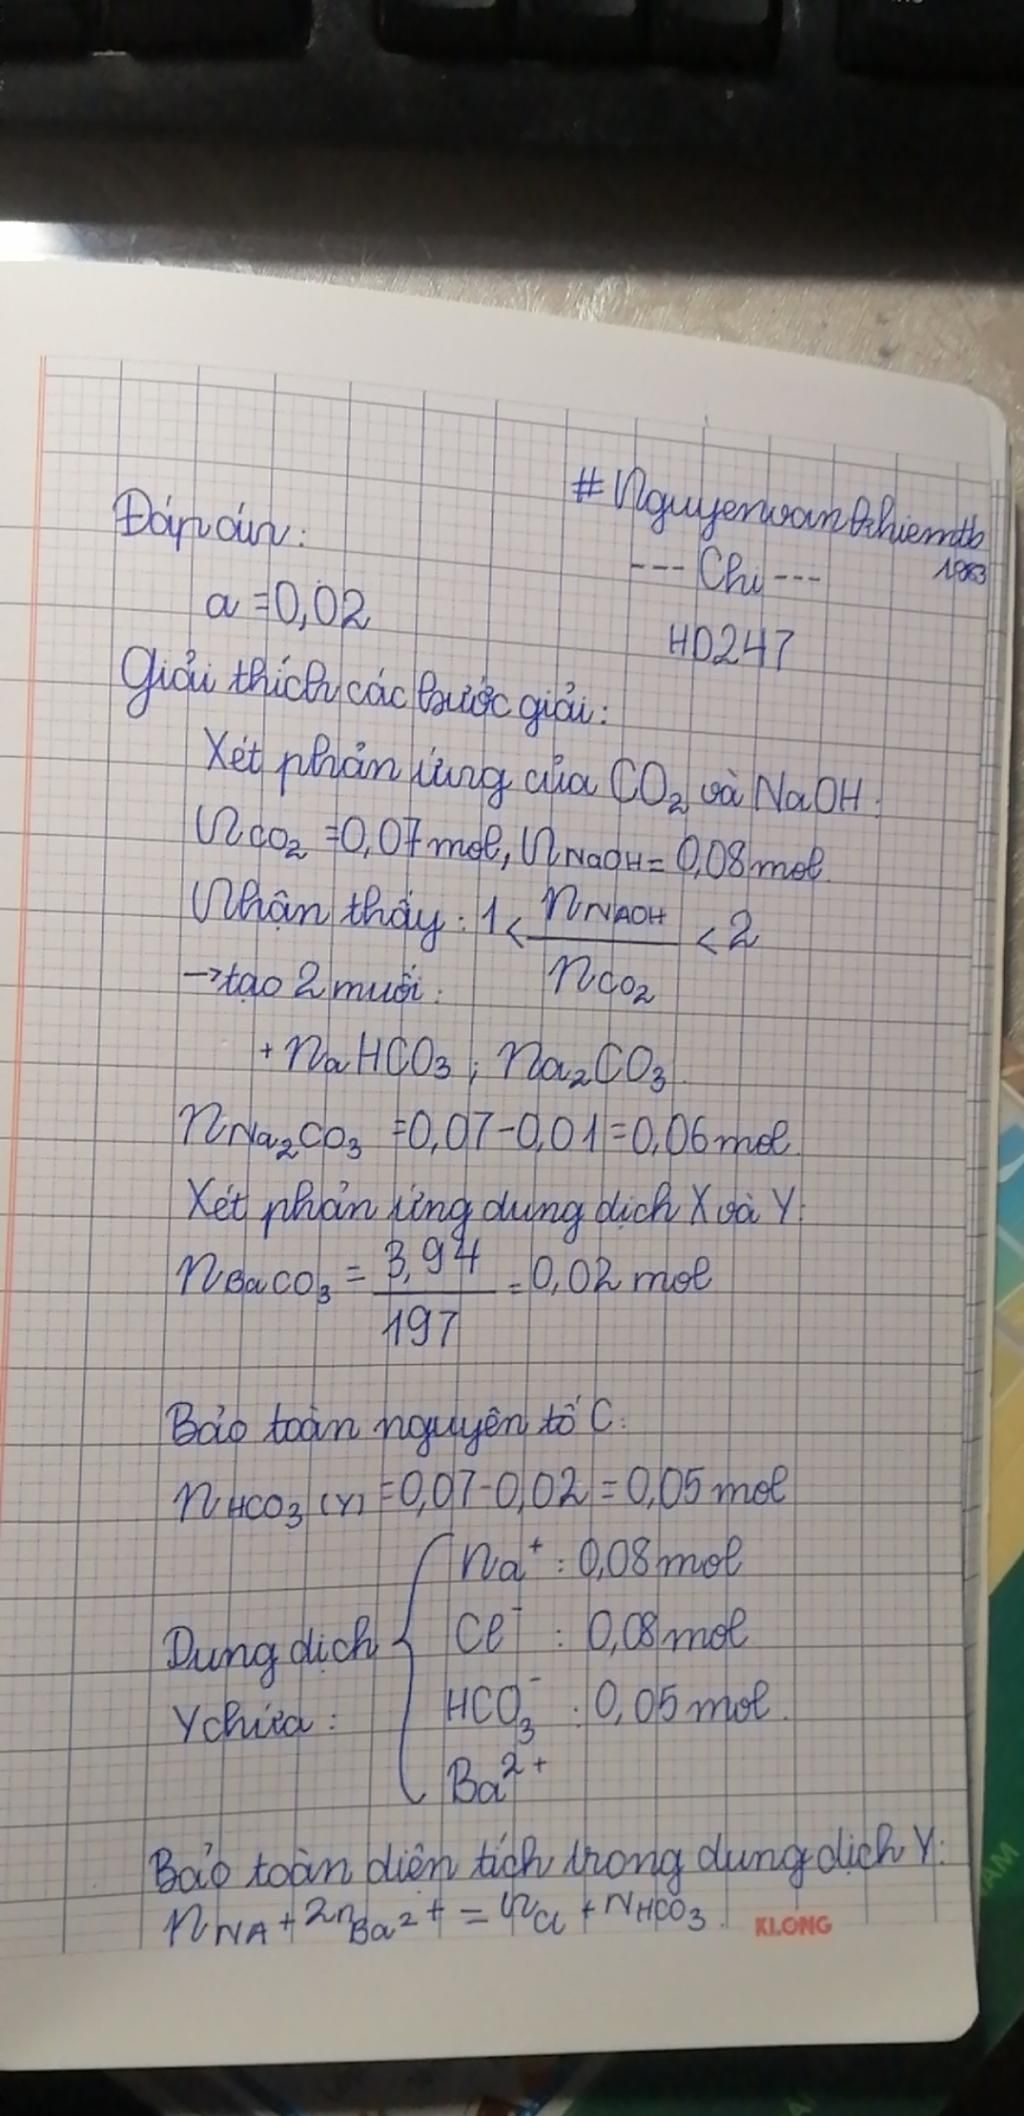 #Nguyenvankhiemtb
1983
Đáp án:
--- Chi ---
a = 0,02
HD247
Giải thích các bước giải:
Xét phản ứng của CO2 và NaOH:
nCO2 = 0,07 mol, nNaOH = 0,08 mol
Nhận thấy: 1 < nNAOH / nCO2 < 2
→ tạo 2 muối:
+ NaHCO3 ; Na2CO3
nNa2CO3 = 0,07 - 0,01 = 0,06 mol
Xét phản ứng dung dịch X và Y:
nBaCO3 = 3,94 / 197 = 0,02 mol
Bảo toàn nguyên tố C:
nHCO3 (Y) = 0,07 - 0,02 = 0,05 mol
Dung dịch Y chứa:
Na+ : 0,08 mol
Cl- : 0,08 mol
HCO3- : 0,05 mol
Ba2+
Bảo toàn diện tích trong dung dịch Y:
nNA + 2nBa2+ = nCl + NHCO3
KLONG